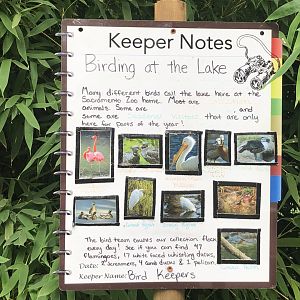 Keeper Notes
Birding at the Lake
Many different birds call the lake here at the
Sacramento Zoo home. Most are
animals. Some are and
some are that are only
here for parts of the year!
The bird team counts our collection flock
every day! See if you can find 47
Flamingoes, 17 white faced whistling ducks,
2 screamers, 4 and ducks & 1 pelican.
Date:
Keeper Name: Bird Keepers